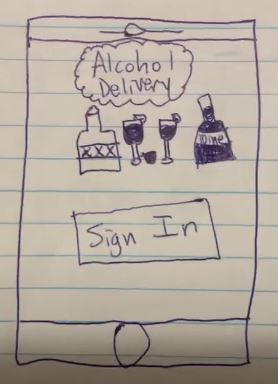 Alcohol
Delivery
XXX
Wine
Sign In